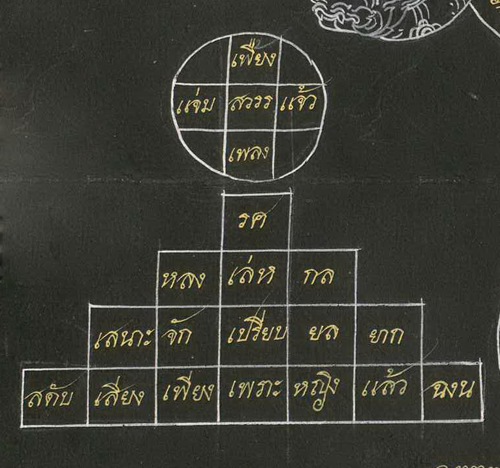 เฟื่อง
แจ่ม สวรร แจ้ว
เพลง
รศ
หลง เล่ห กล
เสนาะ จัก เปรียบ ยล ยาก
สดับ เสียง เพียง เพราะ หญิง แล้ว ฉงน